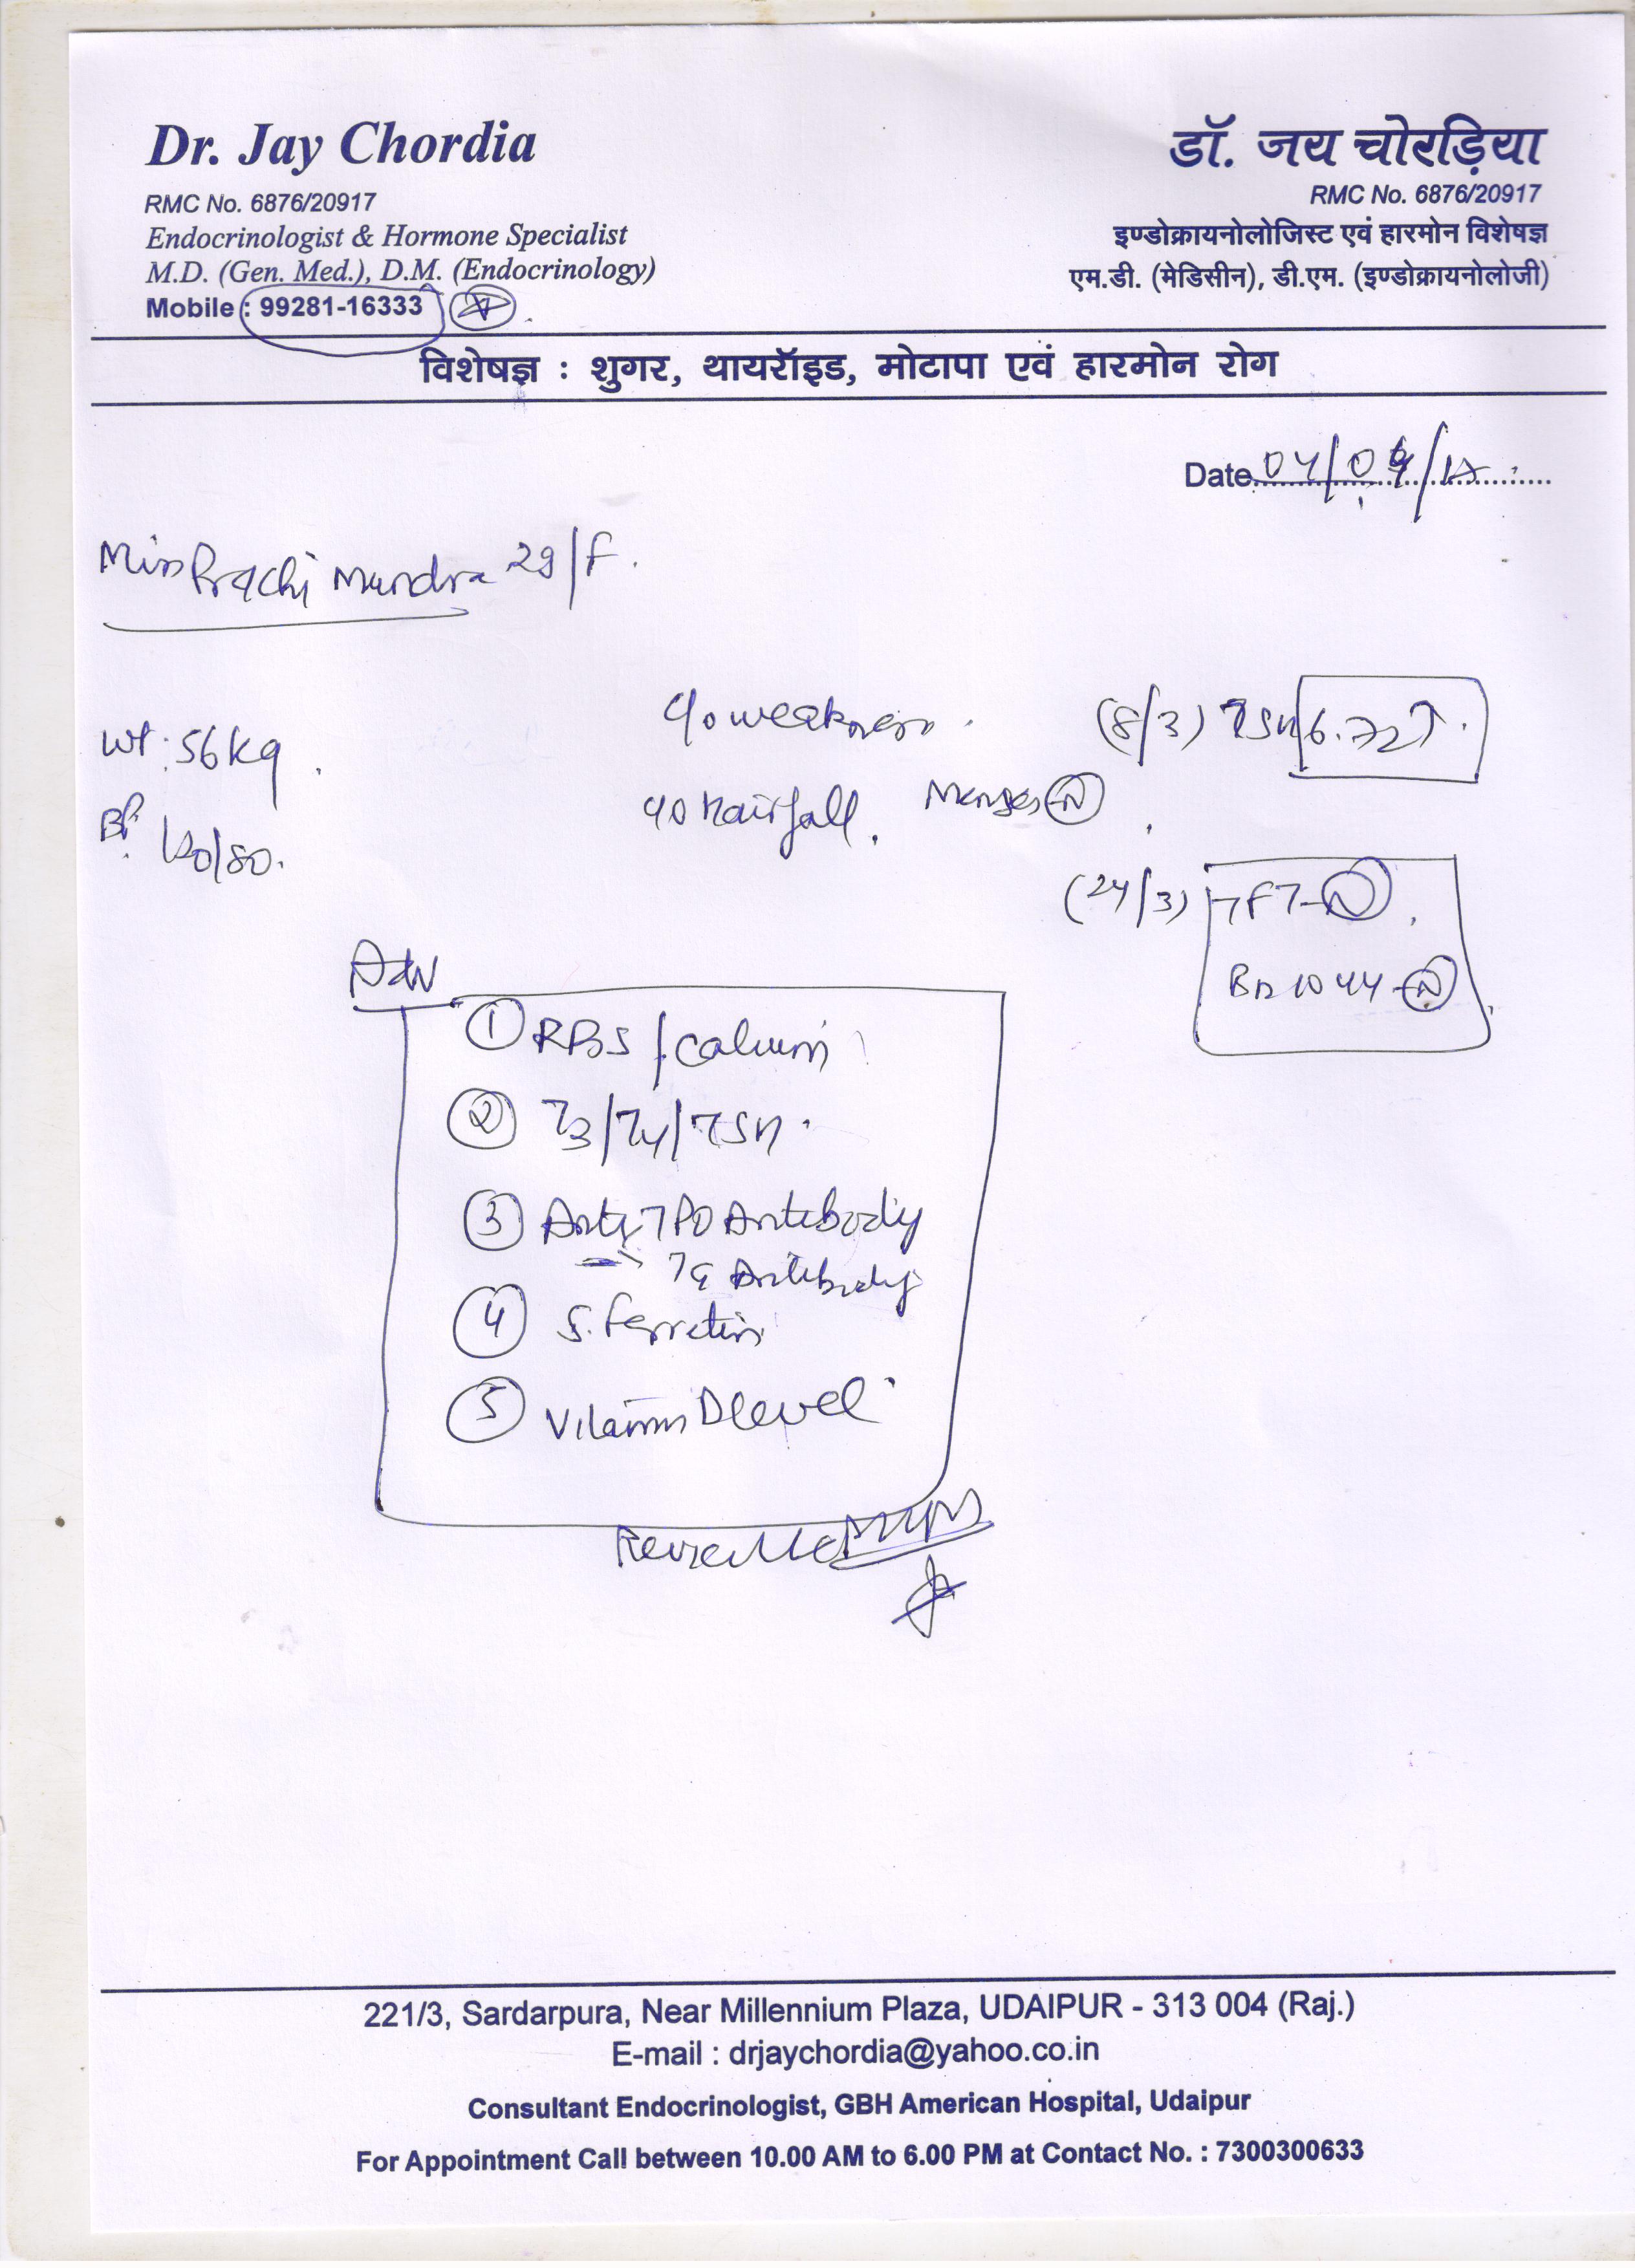 Dr. Jay Chordia
RMC No. 6876/20917
Endocrinologist & Hormone Specialist
M.D. (Gen. Med.), D.M. (Endocrinology)
Mobile : 99281-16333
डॉ. जय चोरड़िया
RMC No. 6876/20917
इण्डोक्रायनोलोजिस्ट एवं हारमोन विशेषज्ञ
एम.डी. (मेडिसीन), डी.एम. (इण्डोक्रायनोलोजी)
विशेषज्ञ : शुगर, थायरॉइड, मोटापा एवं हारमोन रोग
Date 04/04/
Miss Prachi Mundra 29/F.
Wt: 56kg
BP: 120/80.
c/o weakness.
c/o Hairfall. Menses (N)
(8/3) TSH 6.72↑.
(24/3) TFT-(N)
B12 1044-(N)
Adv
① RBS / Calcium
② T3/T4/TSH.
③ Anti TPO Antibody
→ TG Antibody
④ S. Ferretin
⑤ Vitamin D level
Review
221/3, Sardarpura, Near Millennium Plaza, UDAIPUR - 313 004 (Raj.)
E-mail : drjaychordia@yahoo.co.in
Consultant Endocrinologist, GBH American Hospital, Udaipur
For Appointment Call between 10.00 AM to 6.00 PM at Contact No. : 7300300633